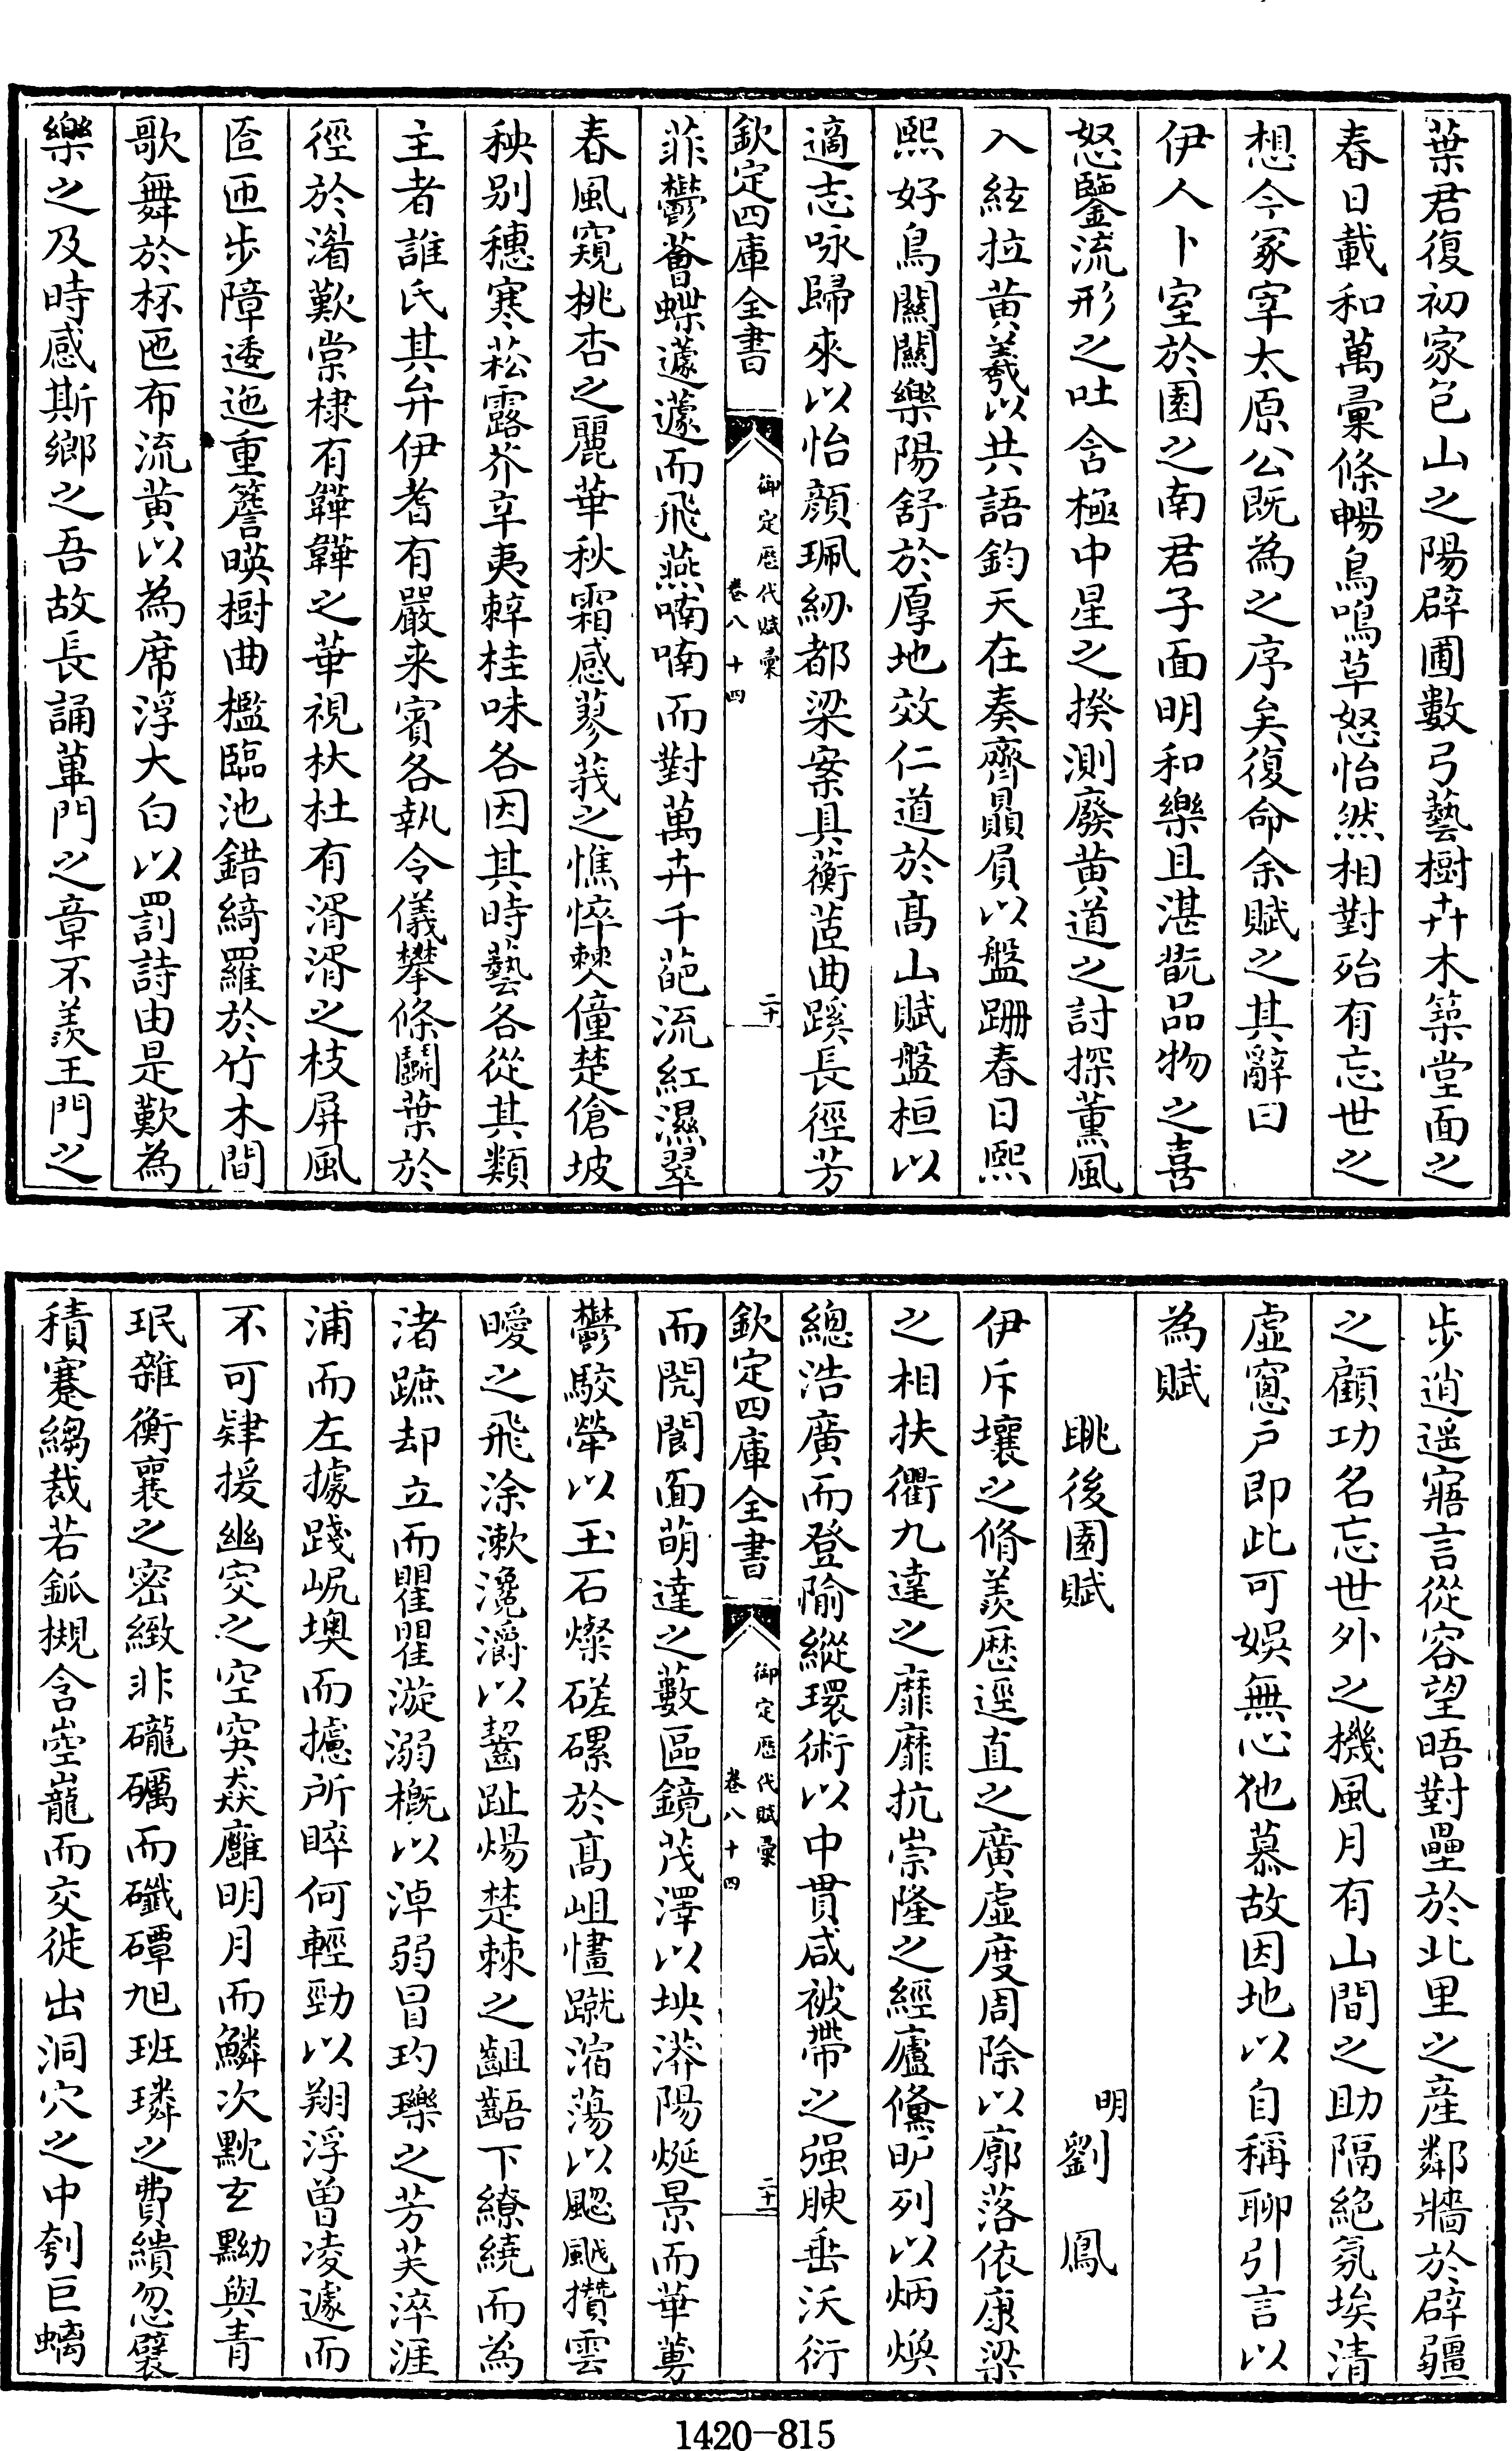 葉君復初家包山之陽辟圃數弓藝樹卉木築堂面之
春日載和萬彙條暢鳥鳴草怒怡然相對殆有忘世之
想今冢宰太原公既為之序矣復命余賦之其辭曰
伊人卜室於園之南君子面明和樂且湛翫品物之喜
怒鑒流形之吐含極中星之揆測廢黄道之討探薰風
入絃拉黄羲以共語鈞天在奏齊贔屓以盤跚春日熙
熙好鳥關關樂陽舒於厚地效仁道於髙山賦盤桓以
適志咏歸來以怡顔珮紉都梁案具蘅茝曲蹊長徑芳
欽定四庫全書
御定歴代賦彙
卷八十四
二十
菲鬱薈蝶蘧蘧而飛燕喃喃而對萬卉千葩流紅濕翠
春風窺桃杏之麗華秋霜感蓼莪之憔悴棘人僮楚傖坡
秧别穗寒菘露芥辛夷辣桂味各因其時藝各從其類
主者誰氏其弁伊耆有嚴来賓各執令儀攀條鬭葉於
徑於渚歎棠棣有韡韡之華視杕杜有湑湑之枝屏風
匼匝步障逶迤重簷暎樹曲檻臨池錯綺羅於竹木間
歌舞於杯匜布流黄以為席浮大白以罰詩由是歎為
樂之及時感斯鄉之吾故長誦蓽門之章不羨王門之
步逍遥寤言從容望晤對壘於北里之産鄰牆於辟疆
之顧功名忘世外之機風月有山間之助隔絶氛埃清
虚窻戸即此可娱無心他慕故因地以自稱聊引言以
為賦
眺後園賦
明劉鳳
伊斥壤之脩羨歴逕直之廣虚度周除以廓落依康梁
之相扶衢九達之靡靡抗崇隆之經廬儻昈列以炳煥
總浩廣而登隃縱環術以中貫咸被帶之强腴垂沃衍
欽定四庫全書
御定歴代賦彙
卷八十四
二十一
而閌閬面萌達之藪區鏡茂澤以坱漭陽烻景而華蕚
鬱駮犖以玉石燦磋磥於髙岨㦎蹴滀蕩以颸颰攢雲
曖之飛涂漱瀺灂以齧趾煬楚棘之齟齬下繚繞而為
渚蹠却立而瞿瞿漩溺概以淖弱冒玓瓅之芳芙淬涯
浦而左據踐岏墺而攄所睟何輕勁以翔浮曽凌遽而
不可肄援幽穾之空穾猋廱明月而鱗次黕玄黝與青
珉雜衡襄之密緻非礲礪而礛磹旭班璘之費繢忽襞
積蹇縐裁若釽槻含崆巃而交徙出洞穴之中刳巨螭
1420-815